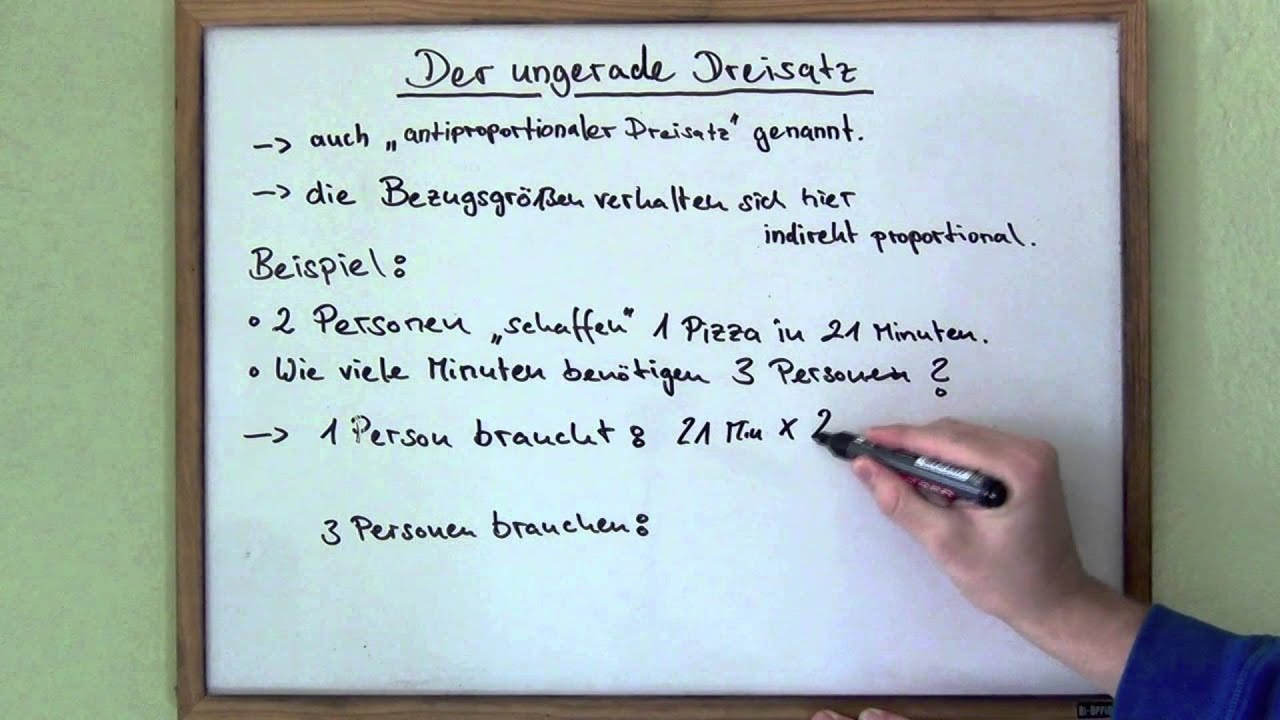 Der ungerade Dreisatz
-> auch „antiproportionaler Dreisatz" genannt.
-> die Bezugsgrößen verhalten sich hier
indirekt proportional.
Beispiel:
• 2 Personen „schaffen" 1 Pizza in 21 Minuten.
• Wie viele Minuten benötigen 3 Personen?
-> 1 Person braucht: 21 Min x 2
3 Personen brauchen: